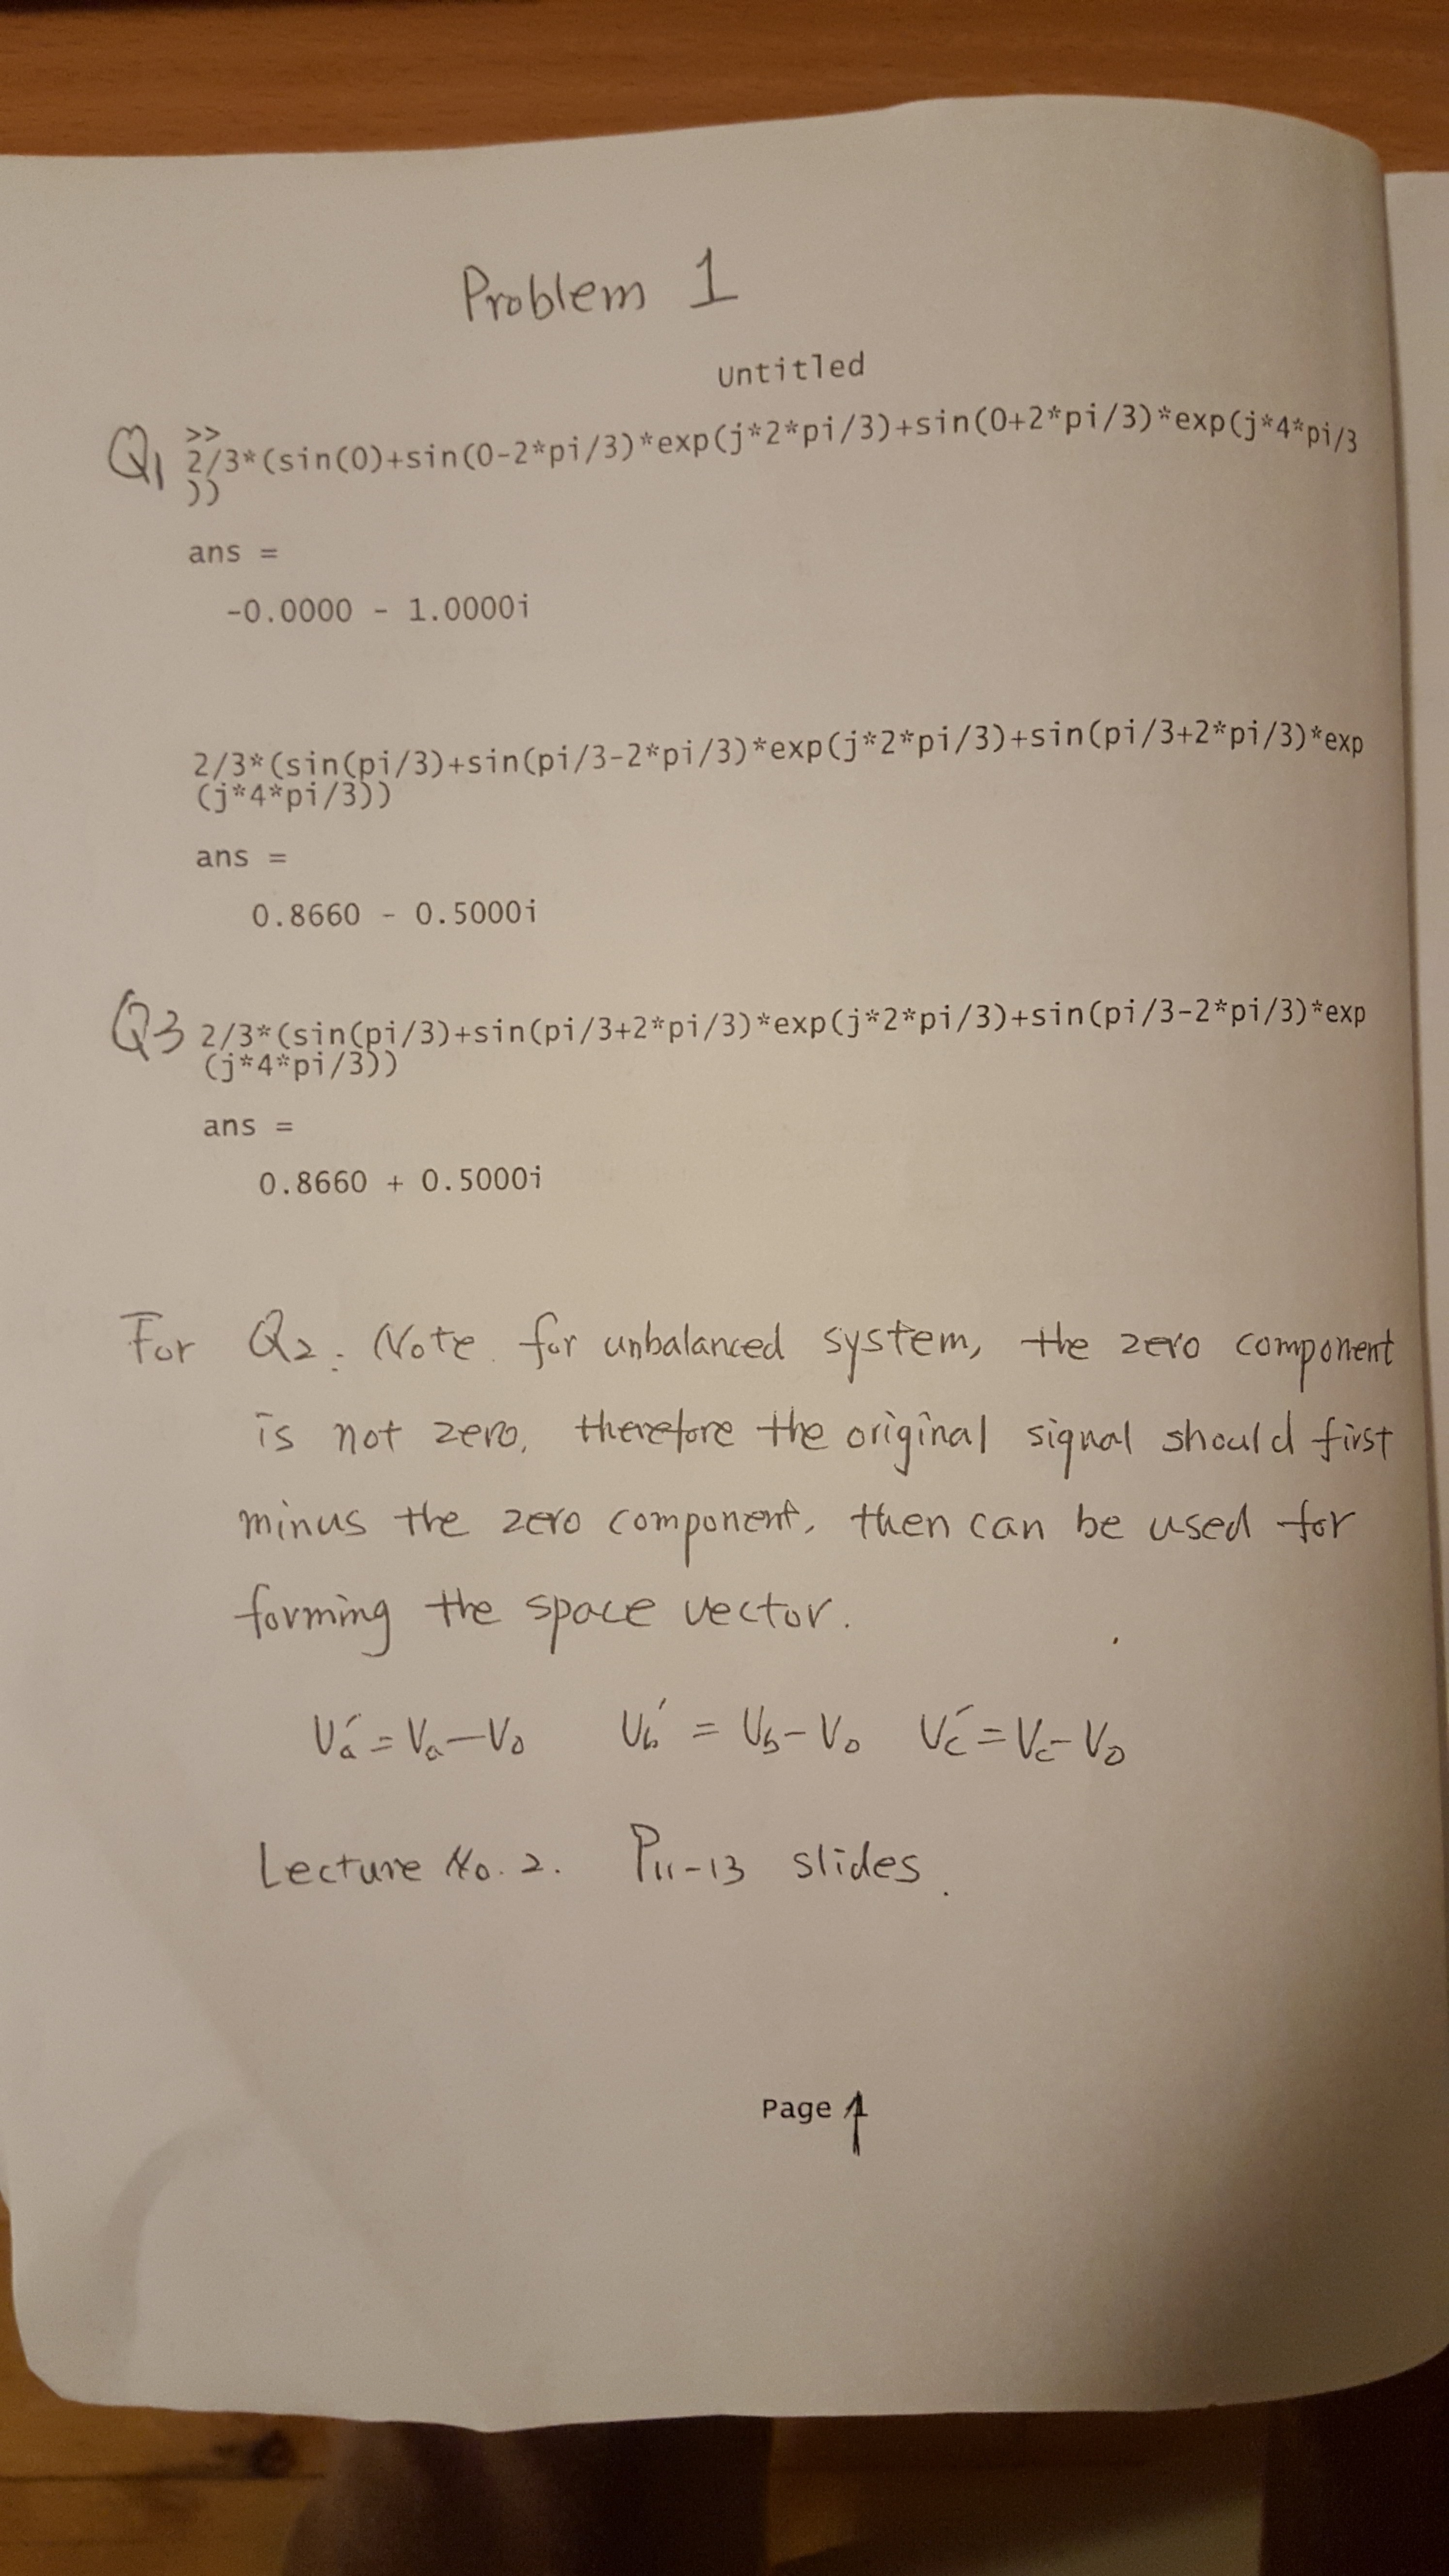 Problem 1
Untitled
Q1 >>
2/3*(sin(0)+sin(0-2*pi/3)*exp(j*2*pi/3)+sin(0+2*pi/3)*exp(j*4*pi/3
))
ans =
-0.0000 - 1.0000i
2/3*(sin(pi/3)+sin(pi/3-2*pi/3)*exp(j*2*pi/3)+sin(pi/3+2*pi/3)*exp
(j*4*pi/3))
ans =
0.8660 - 0.5000i
Q3 2/3*(sin(pi/3)+sin(pi/3+2*pi/3)*exp(j*2*pi/3)+sin(pi/3-2*pi/3)*exp
(j*4*pi/3))
ans =
0.8660 + 0.5000i
For Q2: Note for unbalanced system, the zero component
is not zero, therefore the original signal should first
minus the zero component, then can be used for
forming the space vector.
Va' = Va - V0 Vb' = Vb - V0 Vc' = Vc - V0
Lecture No. 2. P11-13 slides.
Page 1